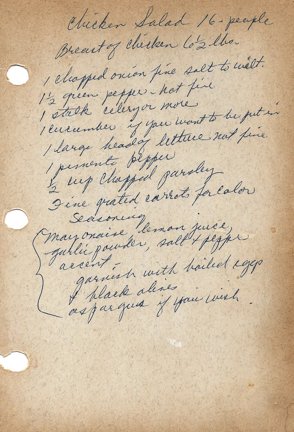 Chicken Salad 16-people
Breast of Chicken 6½ lbs.
1 chopped onion fine salt to wilt.
1½ green pepper - not fine
1 stalk celery or more
1 cucumber if you want to be put in
1 large head of lettuce not fine
1 pimento pepper
½ cup chopped parsley
Fine grated carrots for color
Seasoning
mayonaise, lemon juice,
garlic powder, salt & pepper
accent -
garnish with boiled eggs
& black olives
asparagus if you wish.